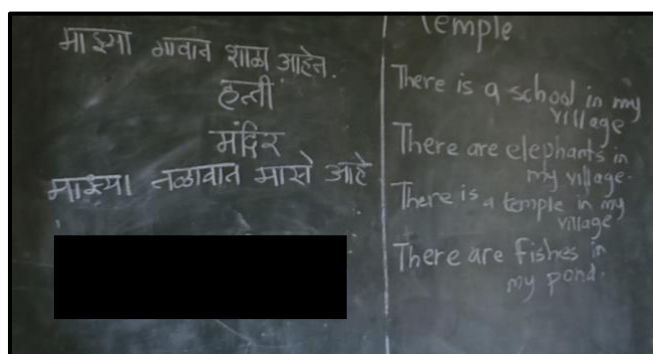 माझ्या गावात शाळा आहेत.
हत्ती
मंदिर
माझ्या तळावात मासे आहे
Temple
There is a school in my
village
There are elephants in
my village.
There is a temple in my
village
There are fishes in
my pond.